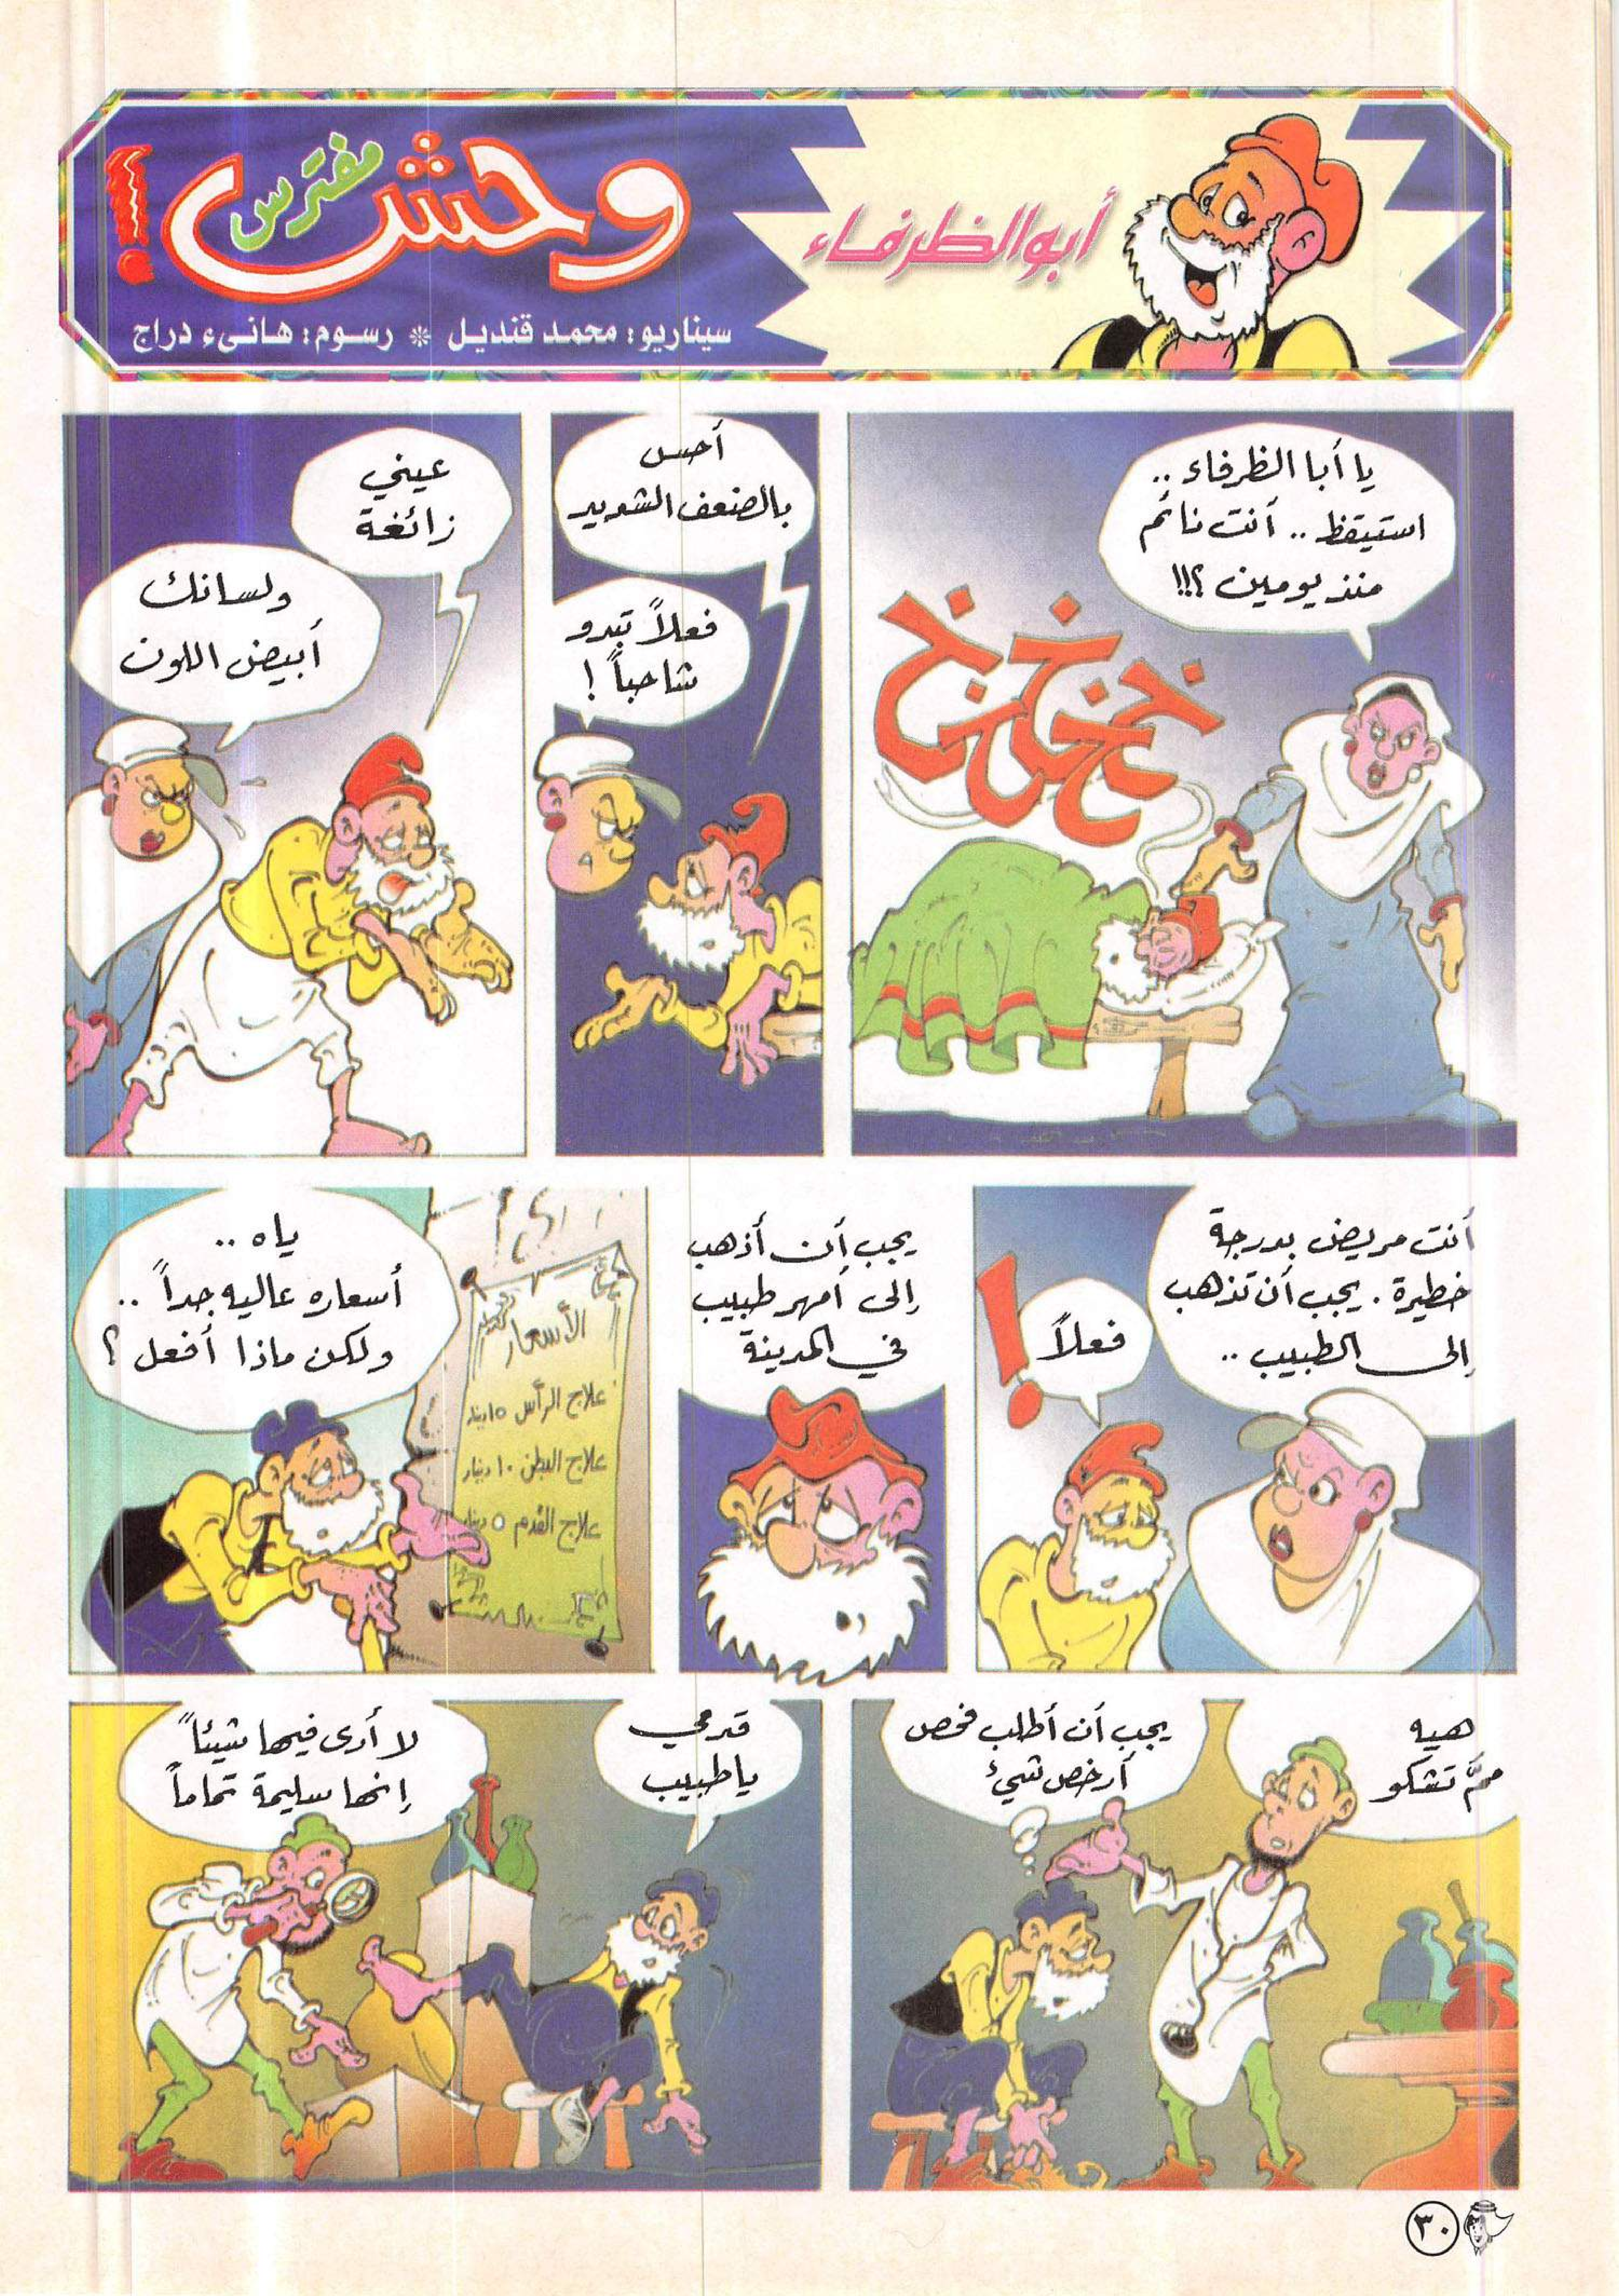 أبو الظرفاء
وحش
مفترس
!
سيناريو: محمد قنديل * رسوم: هانىء دراج
يا أبا الظرفاء ..
استيقظ .. أنت نائم
منذ يومين ؟!!!
خ خ خ خ خ
أحس
بالضعف الشديد
فعلاً تبدو
شاحباً !
عيني
زائغة
ولسانك
أبيض اللون
أنت مريض بدرجة
خطيرة . يجب أن تذهب
إلى الطبيب ..
فعلاً
!
يجب أن أذهب
إلى أمهر طبيب
في المدينة
ياه ..
أسعاره عاليه جداً ..
ولكن ماذا أفعل ؟
الأسعار
علاج الرأس ١٥ دينار
علاج البطن ١٠ دينار
علاج القدم ٥ دينار
هيه
ممَّ تشكو
يجب أن أطلب فحص
أرخص شيء
قدمي
يا طبيب
لا أرى فيها شيئاً
إنها سليمة تماماً
٣٠